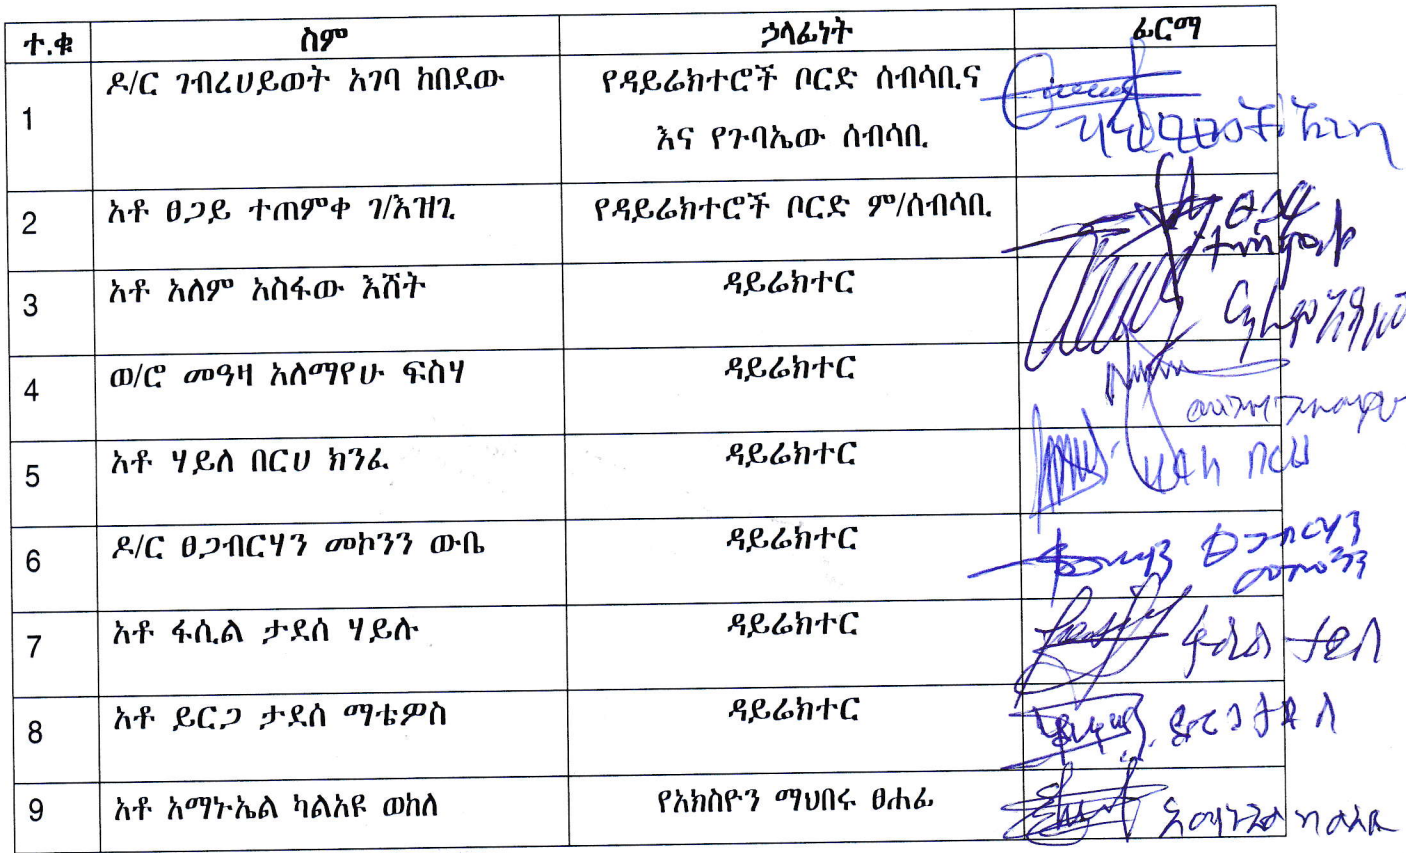 ተ.ቁ ስም ኃላፊነት ፊርማ
1 ዶ/ር ገብረሀይወት አገባ ከበደው የዳይሬክተሮች ቦርድ ሰብሳቢና
እና የጉባኤው ሰብሳቢ
2 አቶ ፀጋይ ተጠምቀ ገ/እዝጊ የዳይሬክተሮች ቦርድ ም/ሰብሳቢ ፀጋይ
ተጠምቀ
3 አቶ አለም አስፋው እሸት ዳይሬክተር
4 ወ/ሮ መዓዛ አለማየሁ ፍስሃ ዳይሬክተር
5 አቶ ሃይለ በርሀ ክንፈ ዳይሬክተር ሃይለ በርሀ
6 ዶ/ር ፀጋብርሃን መኮንን ውቤ ዳይሬክተር ፀጋብርሃን
መኮንን
7 አቶ ፋሲል ታደሰ ሃይሉ ዳይሬክተር ፋሲል ታደሰ
8 አቶ ይርጋ ታደሰ ማቴዎስ ዳይሬክተር ይርጋ ታደሰ
9 አቶ አማኑኤል ካልአዩ ወከለ የአክስዮን ማህበሩ ፀሐፊ አማኑኤል ካልአዩ